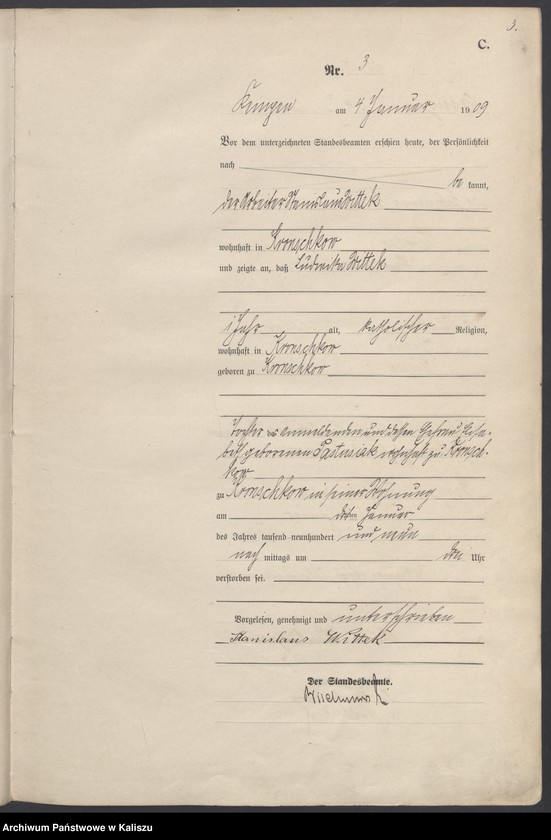 3.
C.
Nr. 3
am 4 Januar 1909
Vor dem unterzeichneten Standesbeamten erschien heute, der Persönlichkeit
nach
be kannt,
der Arbeiter Stanislaus Wittek
wohnhaft in Kronschkow
und zeigte an, daß Ludwika Wittek
1 Jahr alt, katholischer Religion,
wohnhaft in Kronschkow
geboren zu Kronschkow
Tochter des Anmeldenden und dessen Ehefrau Elisa-
beth geborenen Pastusiak wohnhaft zu Kronsch-
kow
zu Kronschkow in seiner Wohnung
am Januar
des Jahres tausend neunhundert und neun
nach mittags um Uhr
verstorben sei.
Vorgelesen, genehmigt und unterschrieben
Stanislaus Wittek
Der Standesbeamte.
Archiwum Państwowe w Kaliszu